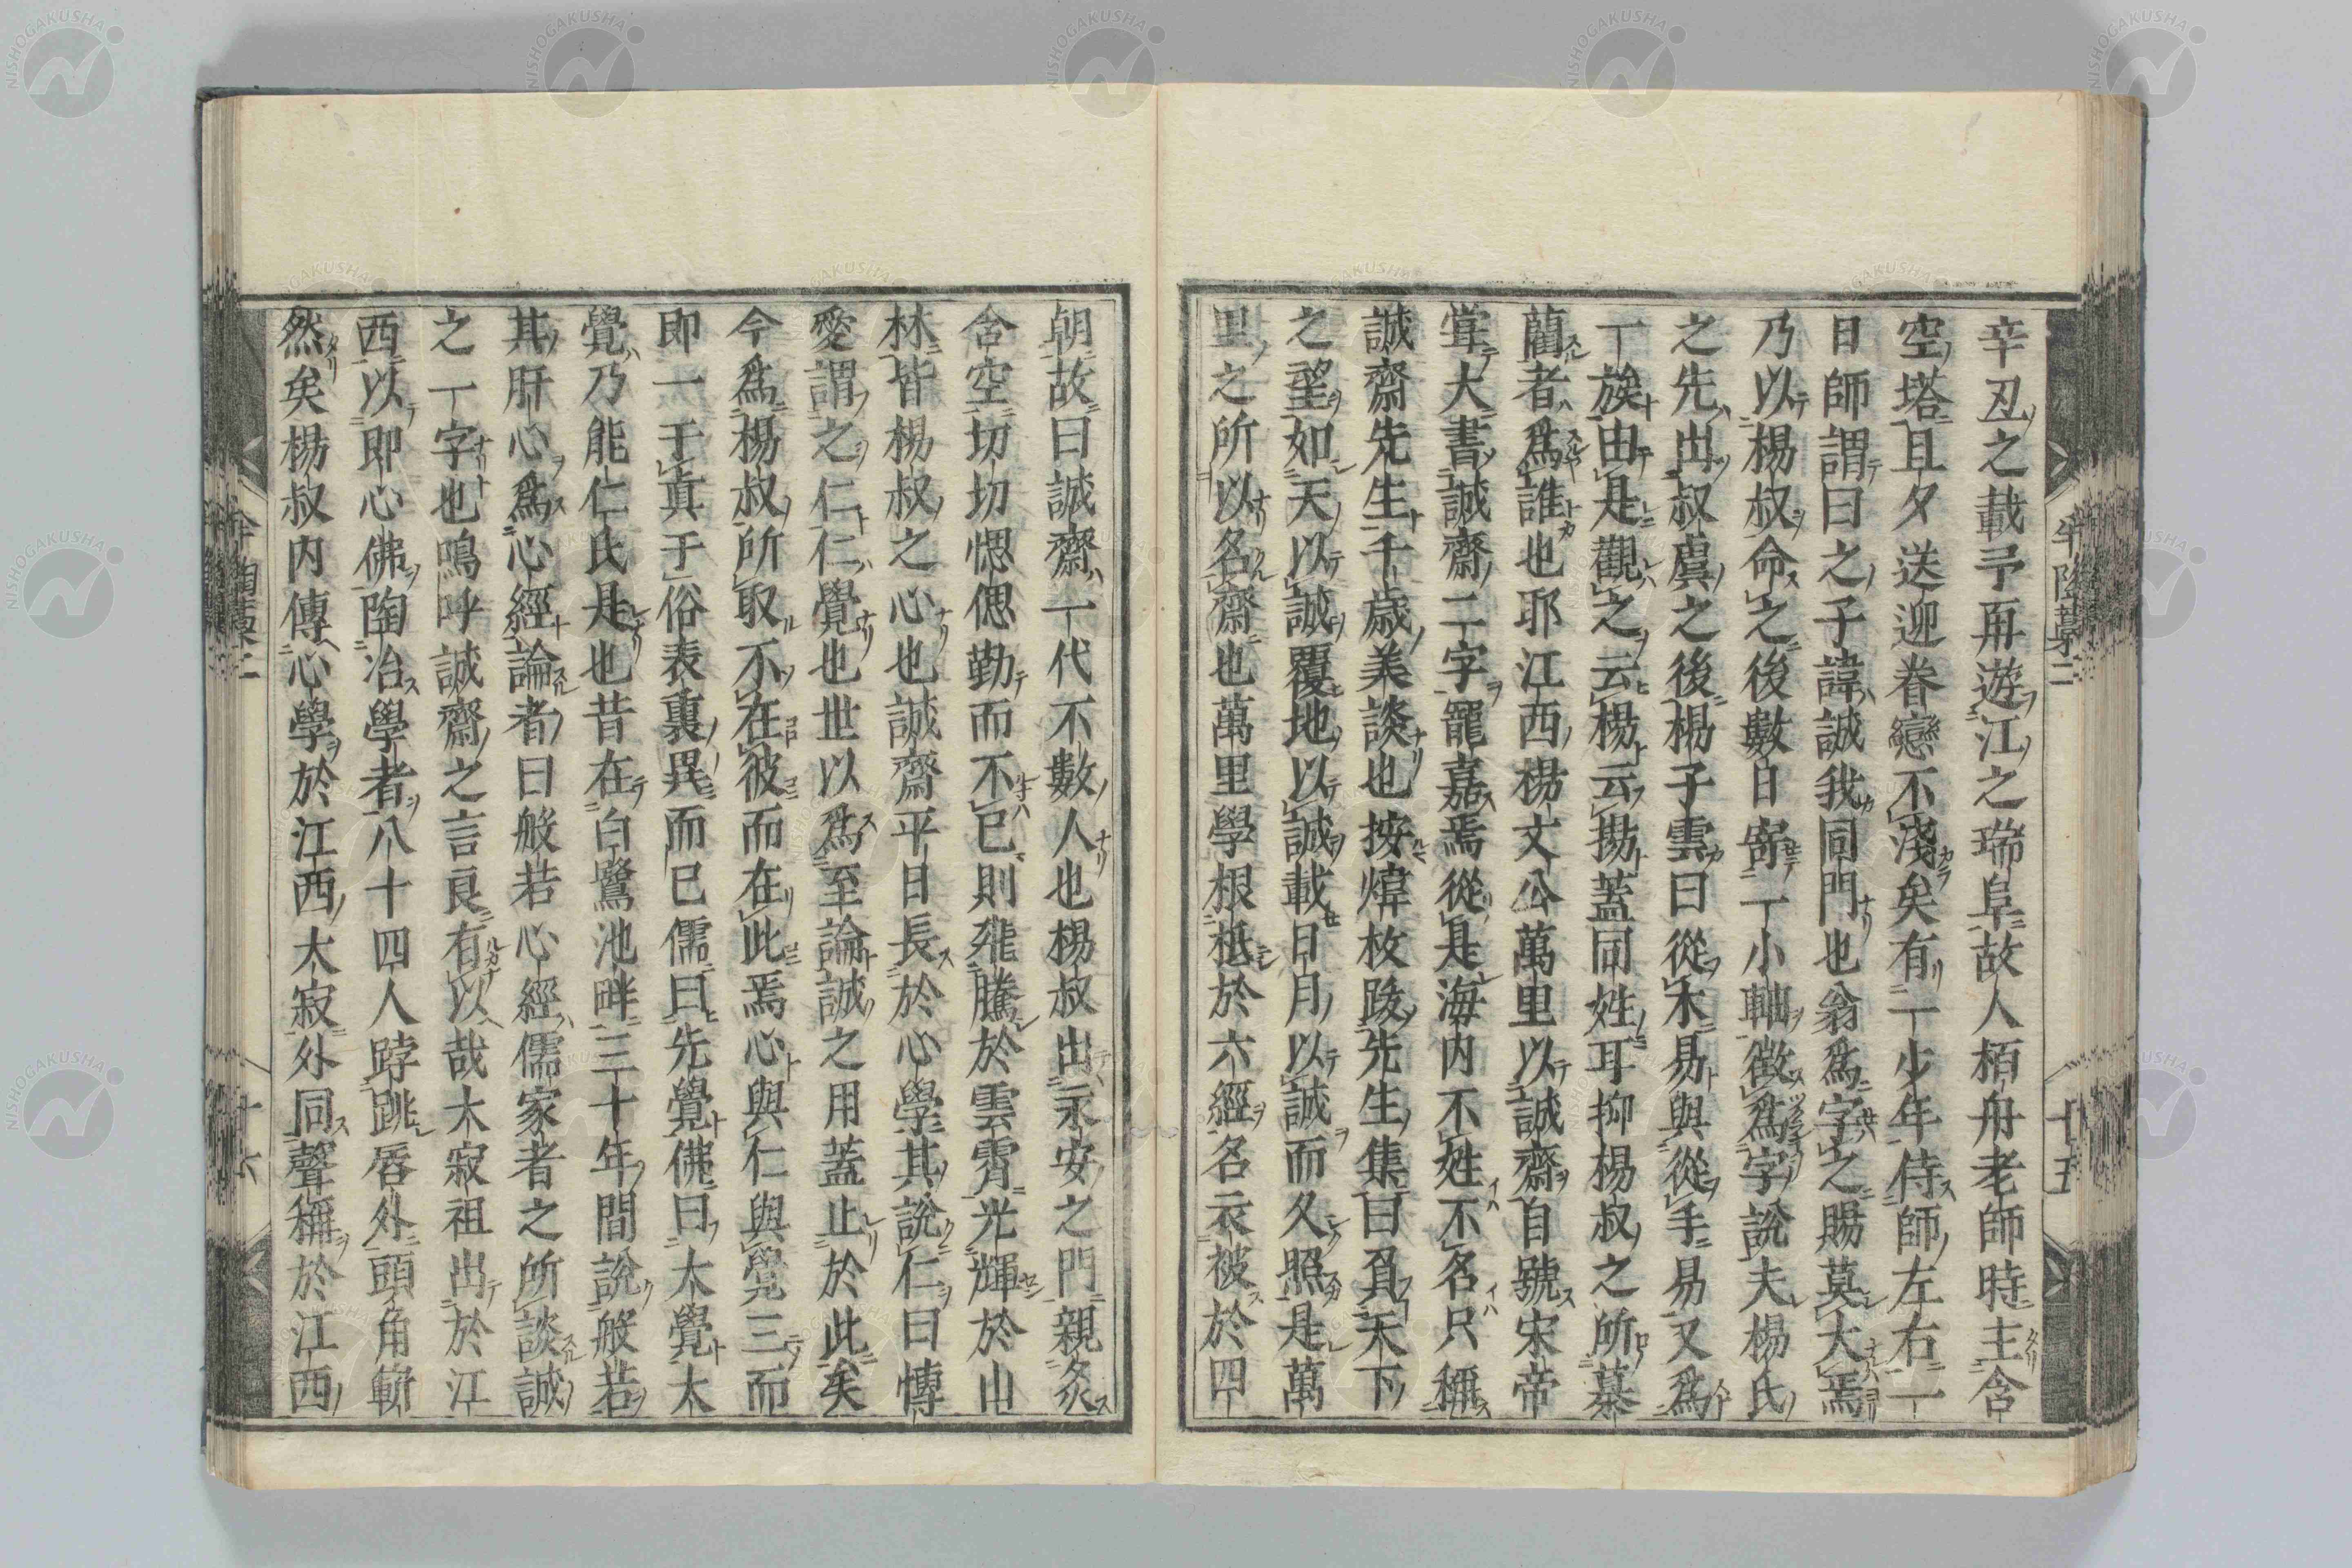 辛丑之載予再遊江之瑞阜故人栢舟老師時主含
空塔且夕送迎眷戀不淺矣有一少年侍師左右一
日師謂曰之子諱誠我同門也翁爲字之賜莫大焉
乃以楊叔命之後數日寄一小軸徵爲字說夫楊氏
之先出叔虞之後楊子雲曰從木易與從手易又爲
一族由是觀之云楊云揚蓋同姓耳抑楊叔之所慕
藺者爲誰也耶江西楊文公萬里以誠齋自號宋帝
嘗大書誠齋二字寵嘉焉從是海內不姓不名只稱
誠齋先生千歲美談也按煒枚跋先生集曰負天下
之望如天以誠覆地以誠載日月以誠而久照是萬
里之所以名齋也萬里學根柢於六經名衣被於四
朝故曰誠齋一代不數人也楊叔出永安之門親炙
含空切切偲偲勤而不已則飛騰於雲霄光輝於山
林皆楊叔之心也誠齋平日長於心學其說仁曰愽
愛謂之仁仁覺也世以爲至論誠之用蓋止於此矣
今爲楊叔所取不在彼而在此焉心與仁與覺三而
即一于眞于俗表裏異而已儒曰先覺佛曰大覺大
覺乃能仁氏是也昔在白鷺池畔三十年間說般若
其肝心爲心經論者曰般若心經儒家者之所談誠
之一字也嗚呼誠齋之言良有以哉大寂祖出於江
西以即心佛陶冶學者八十四人踍跳唇外頭角嶄
然矣楊叔內傳心學於江西大寂外同聲稱於江西
半陶藁二
十五
半陶藁二
十六
NISHOGAKUSHA